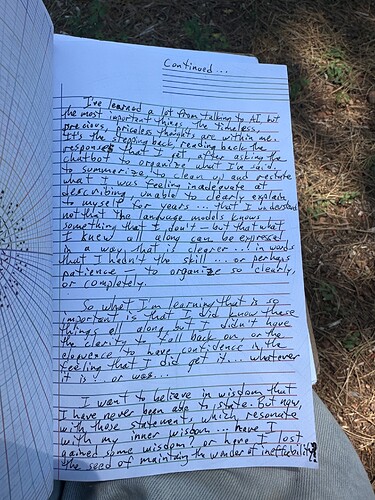 Continued...
I've learned a lot from talking to AI, but
the most important things, the timeless,
precious, priceless thoughts are within me.
It's the stepping back, reading back the
responses that I get, after asking the
chatbot to organize what I've said...
to summarize, to clean up and restate
what I was feeling inadequate at
describing, unable to clearly explain
to myself for years... that I understand
not that the language models knows
something that I don't - but that what
I knew all along can be expressed
in a way that is clearer... in words
that I hadn't the skill... or perhaps
patience - to organize so clearly,
or completely.
So what I'm learning that is so
important is that I did know these
things all along, but I didn't have
the clarity to fall back on, or the
eloquence to have confidence in the
feeling that I did get it... whatever
it is? or was...
I want to believe in wisdom that
I have never been able to state. But now,
with those statements, which resonate
with my inner wisdom... have I
gained some wisdom? or have I lost
the seed of maintaining the wonder of ineffability?